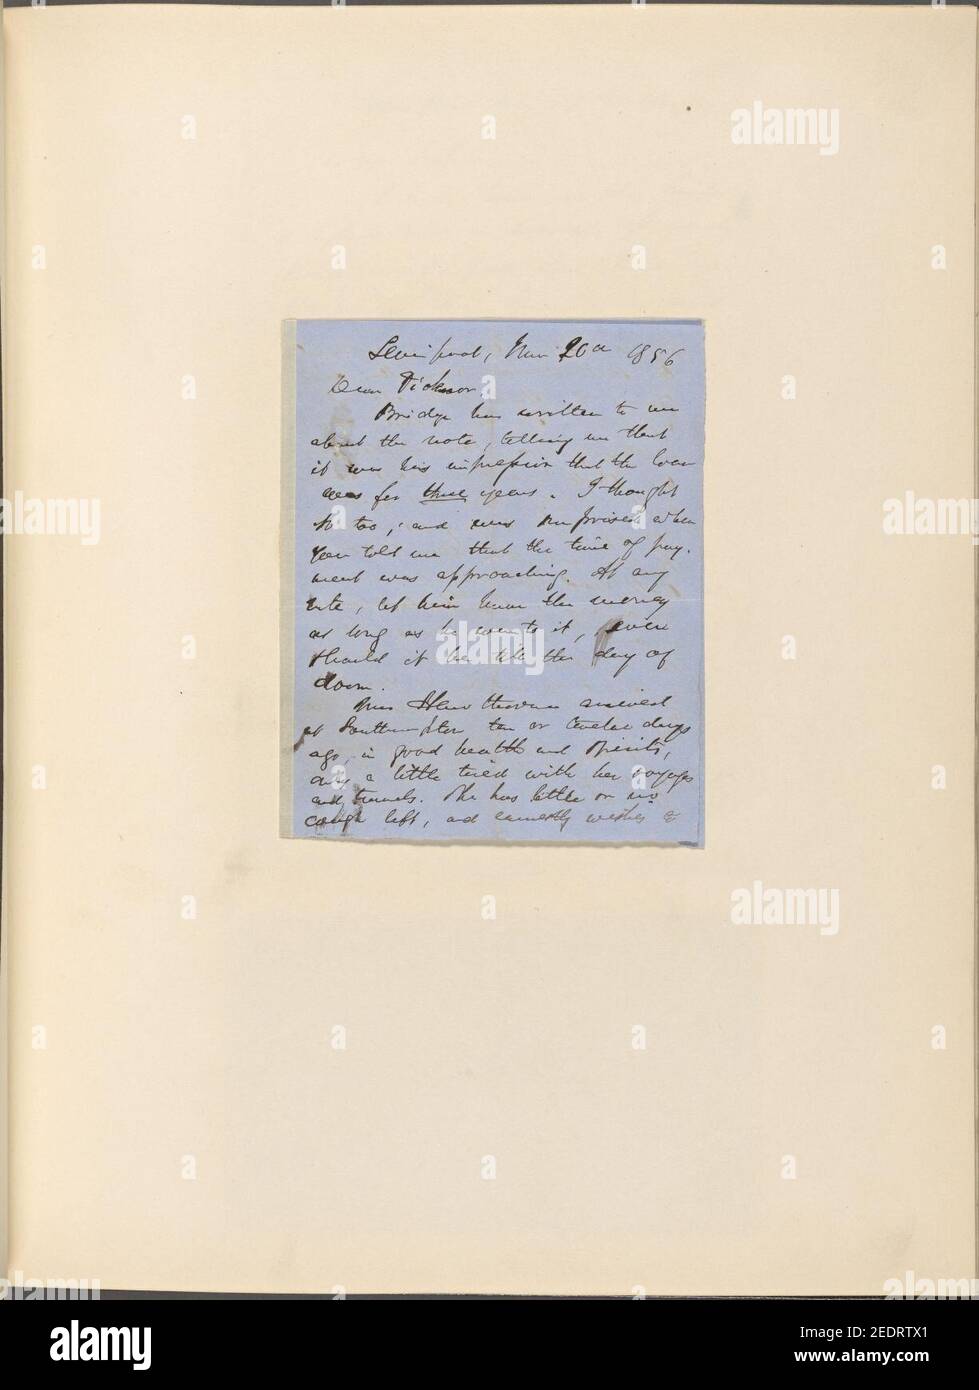 Liverpool, June 20th 1856
Dear Ticknor,
Bridge has written to me
about the note, telling me that
it was his impression that the loan
was for three years. I thought
so too; and was surprised when
you told me that the time of pay-
ment was approaching. At any
rate, let him have the money
as long as he wants it, even
should it be till the day of
doom.
Mrs Hawthorne arrived
at Southampton ten or twelve days
ago, in good health and spirits,
only a little tired with her voyages
and travels. She has little or no
cough left, and earnestly wishes to
alamy
alamy
alamy
alamy
Image ID: 2EDRTX1
www.alamy.com